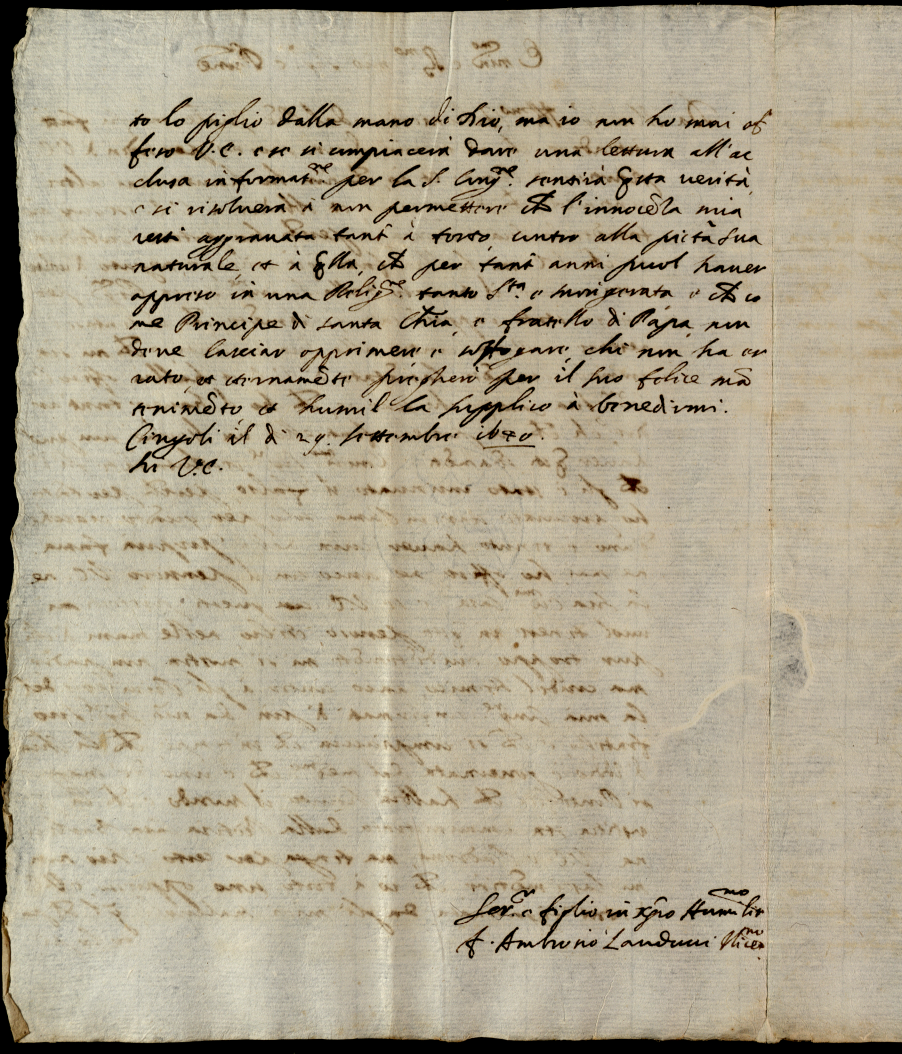 to lo piglio dalla mano di Dio, ma io non ho mai of
feso V.E. e se si compiacerà dare una lettura all'ac
clusa informat.ne per la S. Cong.ne sentirà q̃sta verità,
e si risolverà à non permettere ch̃ l'innocẽza mia
resti aggravata tant' à torto, contro alla pietà sua
naturale, et à q̃lla, ch̃ per tant' anni puol haver
appreso in una Relig.ne tanto S.ta e morigerata e ch̃ co
me Principe di santa Chĩa, e fratello di Papa, non
deve lasciar opprimere e soffogare, chi non ha er
rato, et eternamẽte pregherò per il suo felice mã
tenimẽto, et humil la supplico à benedirmi.
Cingoli il dì 29. settembre 1640.
Di V.E.
Ser.re e figlio in Xp̃o Humiliss.mo
f. Ambrosio Landucci